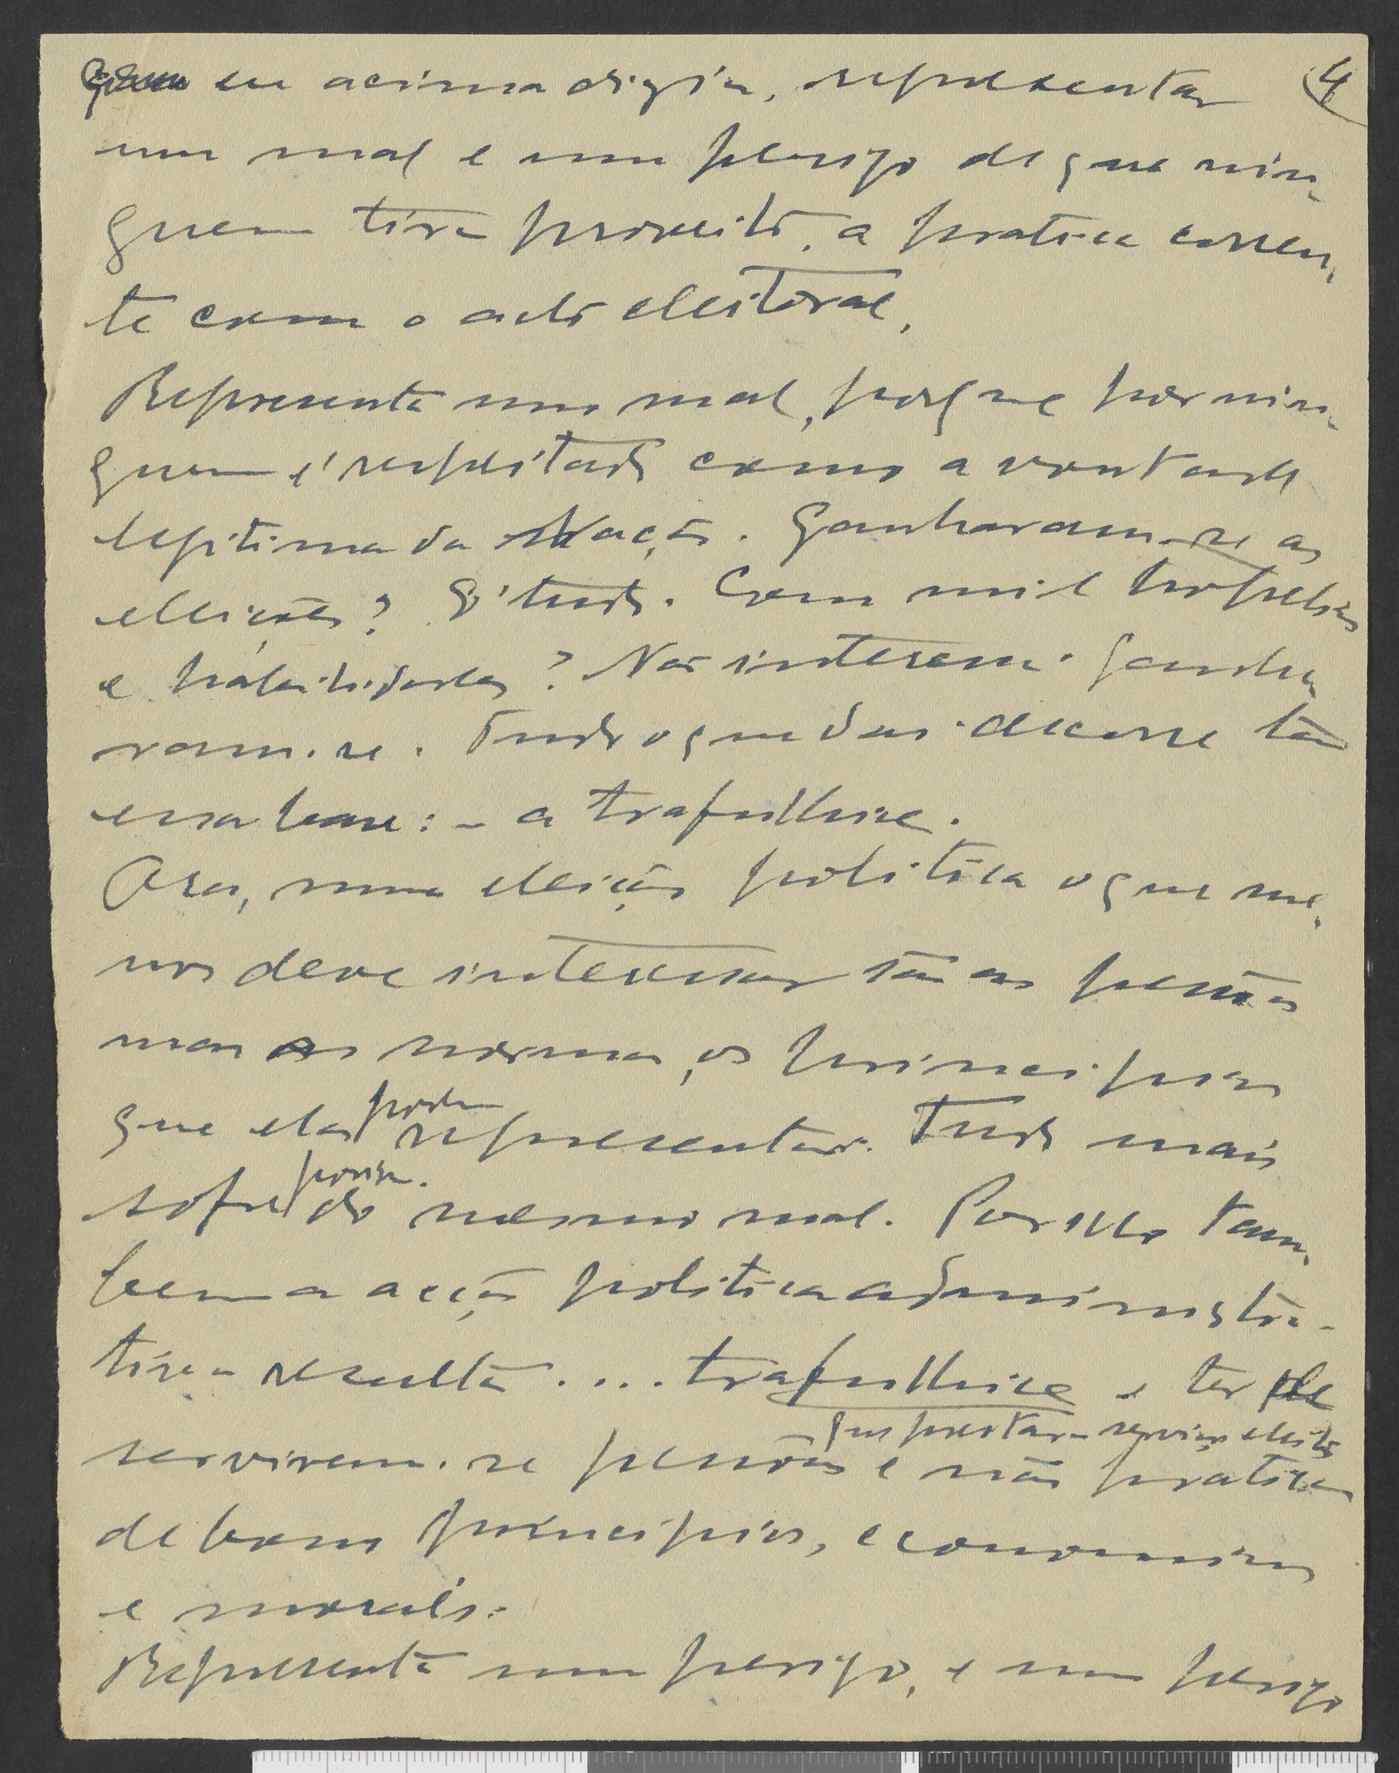 que eu acima dizia, representar 4
um mal e um perigo de que nin-
guem tira proveito, a pratica corren-
te com o acto eleitoral.
Representa um mal, porque por nin-
guem é respeitado como a vontade
legitima da Nação. Ganharam-se as
eleições? É tudo. Com mil tropelias
e habilidades? Não interessa. Ganha-
ram-se. Tudo o que dai decorre tem
essa base: - a trafulhice.
Ora, numa eleição politica o que me-
nos deve interessar são as pessoas
mas as normas, os principios
que elas podem representar. Tudo mais
sofre porisso do mesmo mal. Por isso tam-
bem a acção politica administra-
tiva resulta .... trafulhice e ter de
servirem-se pessoas que prestaram serviços eleitos e não praticar
de bons principios, economicos
e morais.
Representa um perigo, e um perigo